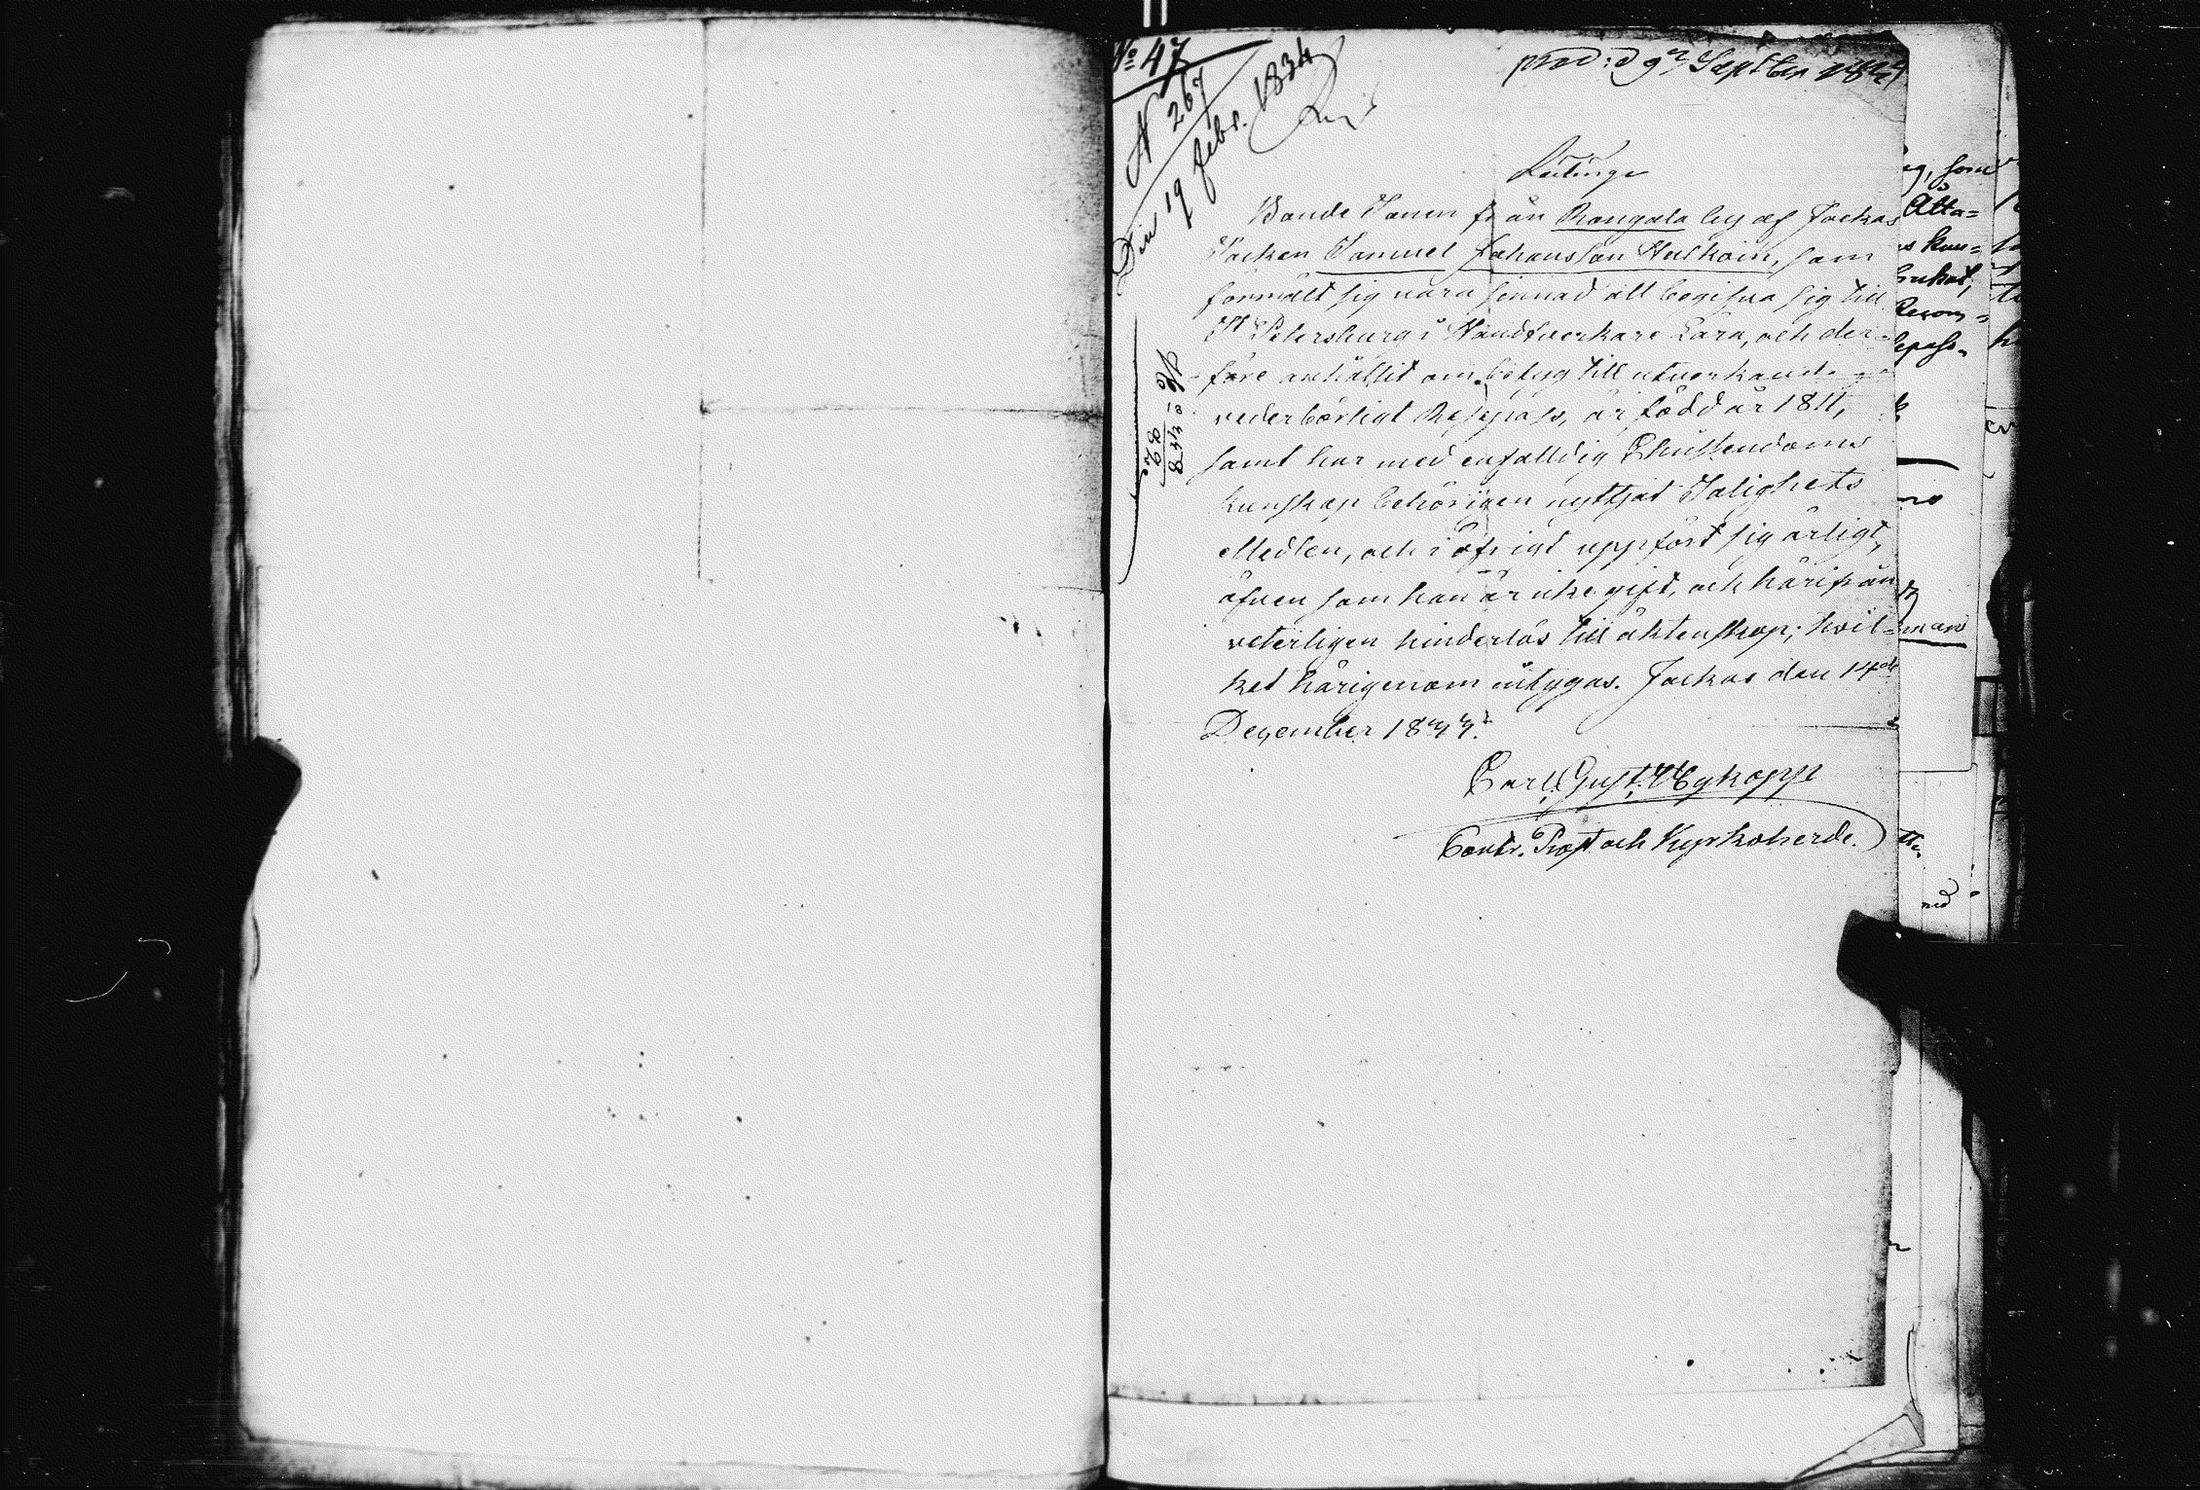 No 47
N 267
Div 19 febr. 1834
prod: d 9 Septbr
Bonde Sonen från Rongala by af Jockas
Socken Samuel Johansson Heiskoin, som
förmält sig vara sinnad att begifva sig till
St Petersburg i Handtverkare Lära, och der-
före anhållit om betyg till utverkande
vederbörligt Respass, är född år 1811,
samt har med enfalldig Christendoms
kunskap behörigen nyttjat Salighets
Medlen, och i öfrigt uppfört sig ärligt,
äfven som han är icke gift, och härifrån
veterligen hinderlös till äktenskap; hvil-
ket härigenom intygas. Jockas den 14de
December 1833.
Carl Gust. Wykopp
Contr. Prost och Kyrkoherde.